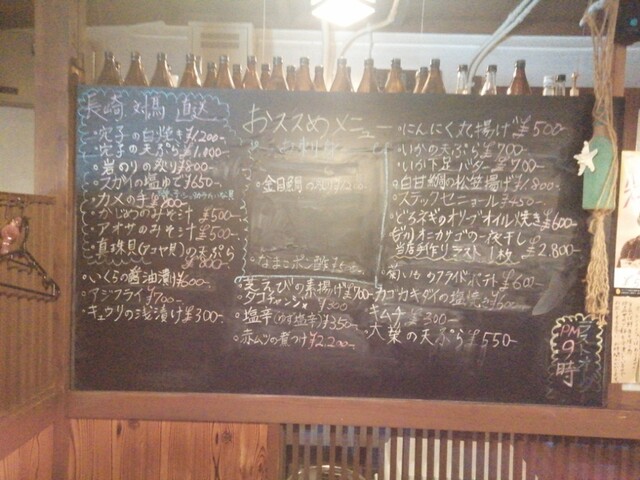 長崎 対馬 直送
・穴子の白焼き ¥1,200-
・穴子の天ぷら ¥1,000
・岩のりの炙り ¥800-
・スガイの塩ゆで ¥650-
・カメの手 ¥800
・かじめのみそ汁 ¥500-
・アオサのみそ汁 ¥500-
・真珠貝(アコヤ貝)の天ぷら ¥800-
・いくらの醤油漬け ¥600-
・アジフライ ¥700-
・キュウリの浅漬け ¥300-
おススメメニュー
・金目鯛
・なまこポン酢
・芝えびの素揚げ ¥700-
・タコチャンジャ ¥300
・塩辛(ゆず塩辛) ¥350-
・赤ムツの煮つけ ¥2,200-
・にんにく丸揚げ ¥500-
・いかの天ぷら ¥700-
・いか下足バター ¥700-
・白甘鯛の松笠揚げ ¥1,800-
・ステックセニョール ¥450-
・どろネギのオリーブオイル焼き ¥600-
・オニカサゴの一夜干し
当店手作り 1枚 ¥2,800-
・菊いものフライドポテト ¥600-
・カゴカキダイの塩焼き
・キムチ ¥300-
・大葉の天ぷら ¥550-
PM
9時